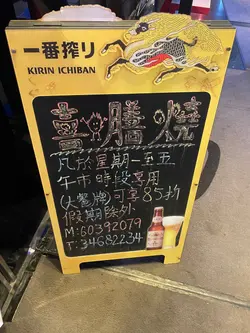 一番搾り
KIRIN ICHIBAN
喜臨燒
凡於星期一至五
午市時段享用
(大餐牌)可享85折
假期除外
M:60392079
T:34682234